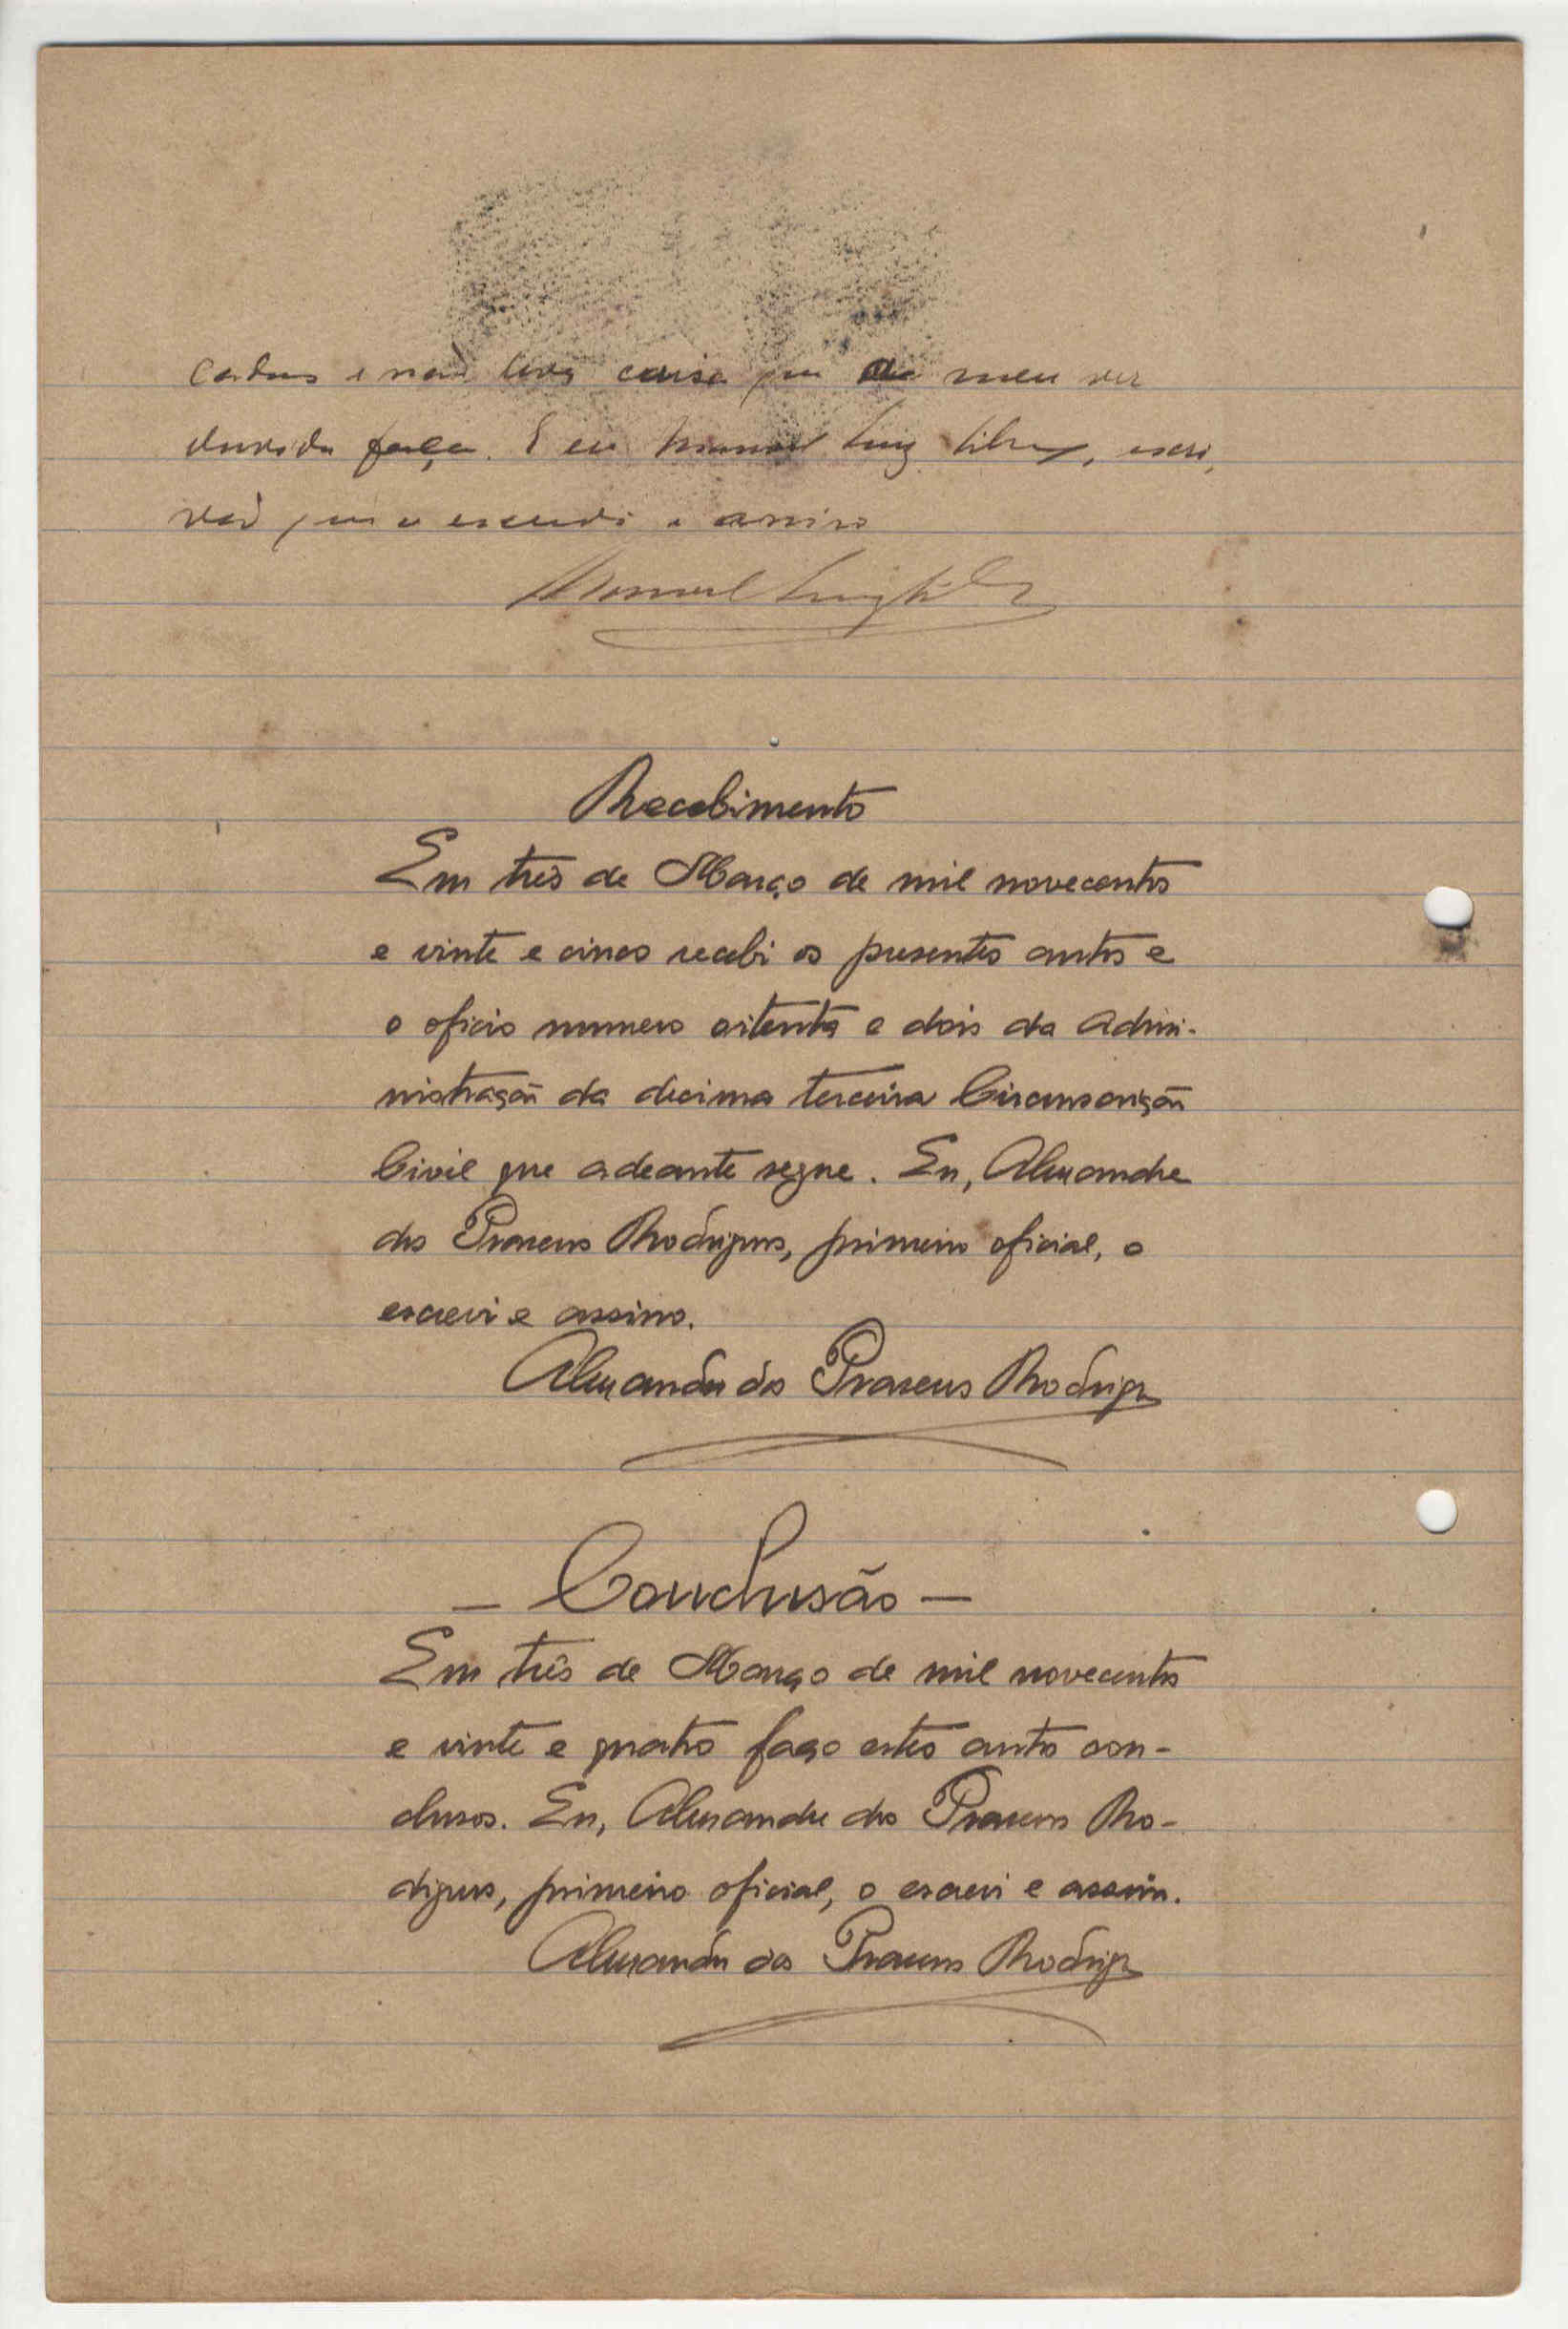 e não leva coisa que a meu ver
duvida faça. E eu Manuel Luiz, escri,
vão que o escrevi e assino
Manuel Luiz
Recebimento
Em três de Março de mil novecentos
e vinte e cinco recebi os presentes autos e
o oficio numero oitenta e dois da Admi-
nistração da decima terceira Circunscrição
Civil que adeante segue. Eu, Alexandre
dos Prazeres Rodrigues, primeiro oficial, o
escrevi e assino.
Alexandre dos Prazeres Rodrigues
— Conclusão —
Em três de Março de mil novecentos
e vinte e quatro faço estes autos con-
clusos. Eu, Alexandre dos Prazeres Ro-
drigues, primeiro oficial, o escrevi e assino.
Alexandre dos Prazeres Rodrigues